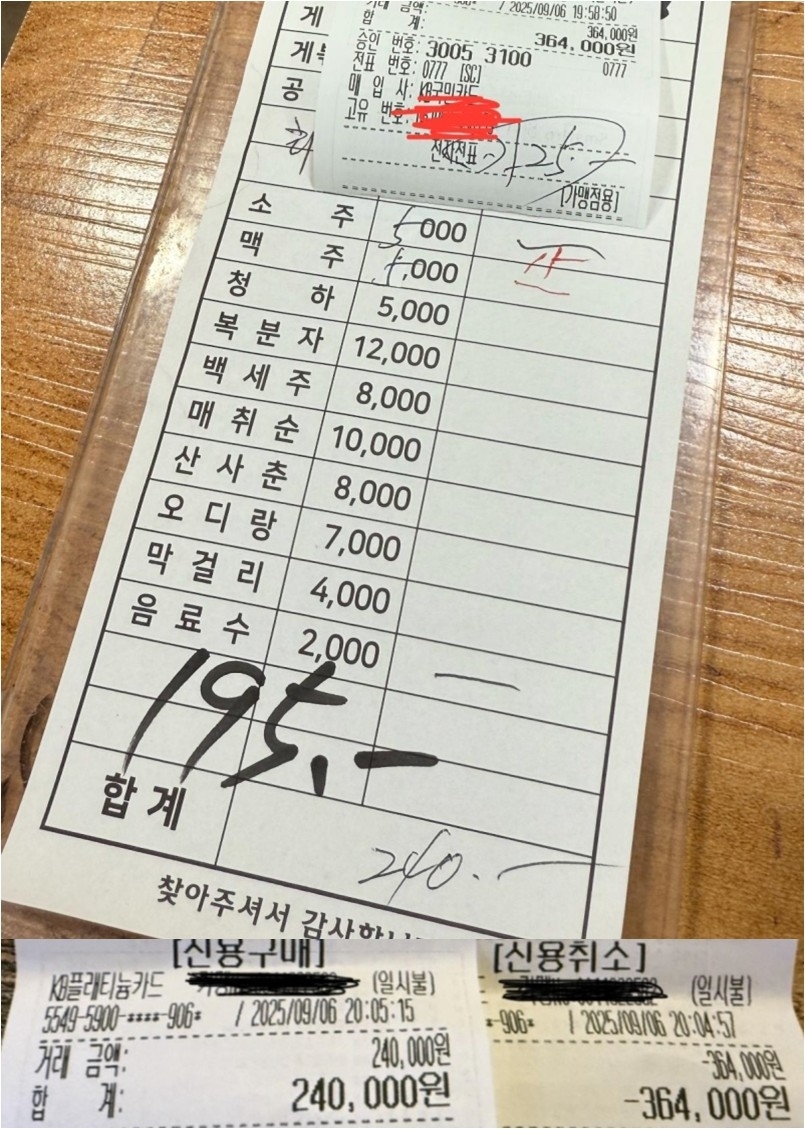 게
게
공
거래 금액: / 2025/09/06 19:58:50
364,000원
합 계: 364,000원
승인 번호: 3005 3100
전표 번호: 0777 [SC] 0777
매 입 사: KB국민카드
고유 번호:
전자전표
125.-
[가맹점용]
소 주 5000
맥 주 5,000
청 하 5,000
복 분 자 12,000
백 세 주 8,000
매 취 순 10,000
산 사 춘 8,000
오 디 랑 7,000
막 걸 리 4,000
음 료 수 2,000
195.-
합 계
240.-
찾아주셔서 감사합니
[신용구매]
KB플래티늄카드 (일시불)
5549-5900-****-906* / 2025/09/06 20:05:15
거래 금액: 240,000원
합 계: 240,000원
[신용취소]
(일시불)
*-906* / 2025/09/06 20:04:57
-364,000원
-364,000원